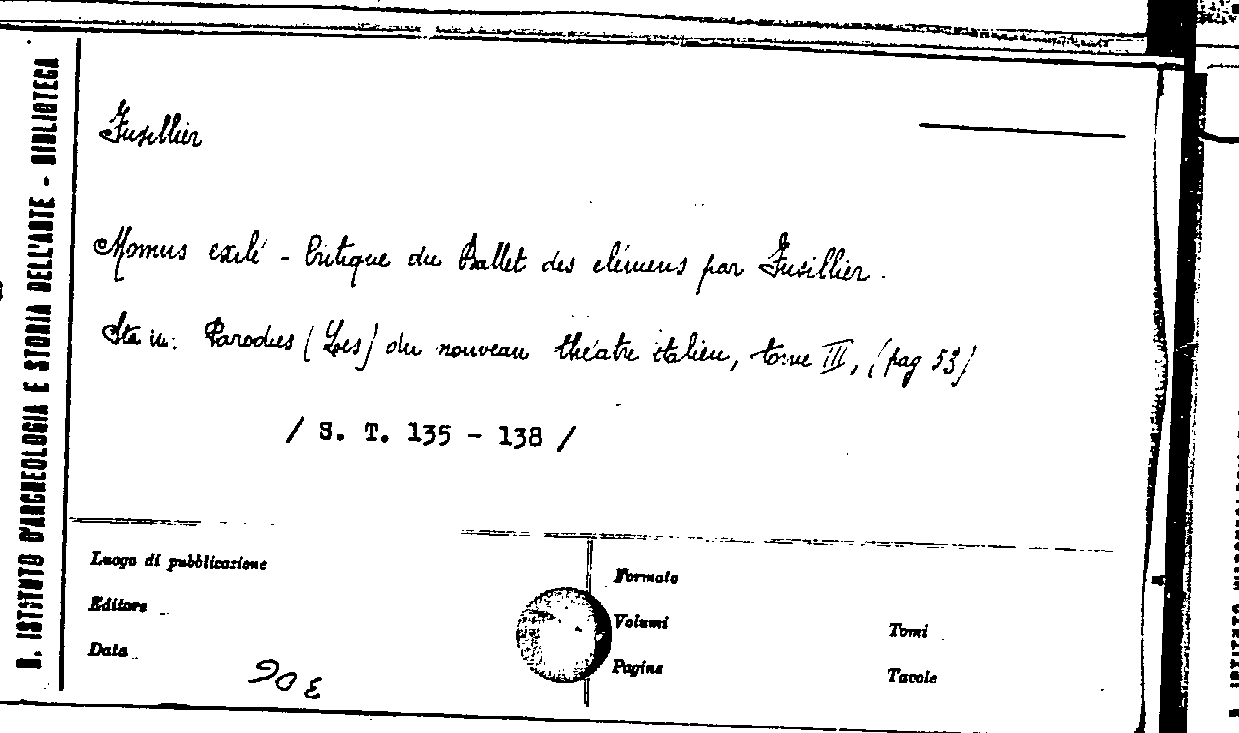 R. ISTITUTO D'ARCHEOLOGIA E STORIA DELL'ARTE - BIBLIOTECA
Fusillier
Momus exilé - Critique du Ballet des élémens par Fusillier.
Sta in: Parodies (Les) du nouveau théatre italien, tome III, (pag 53)
/ S. T. 135 - 138 /
Luogo di pubblicazione
Editore
Data
Formato
Volumi
Tomi
Pagine
Tavole